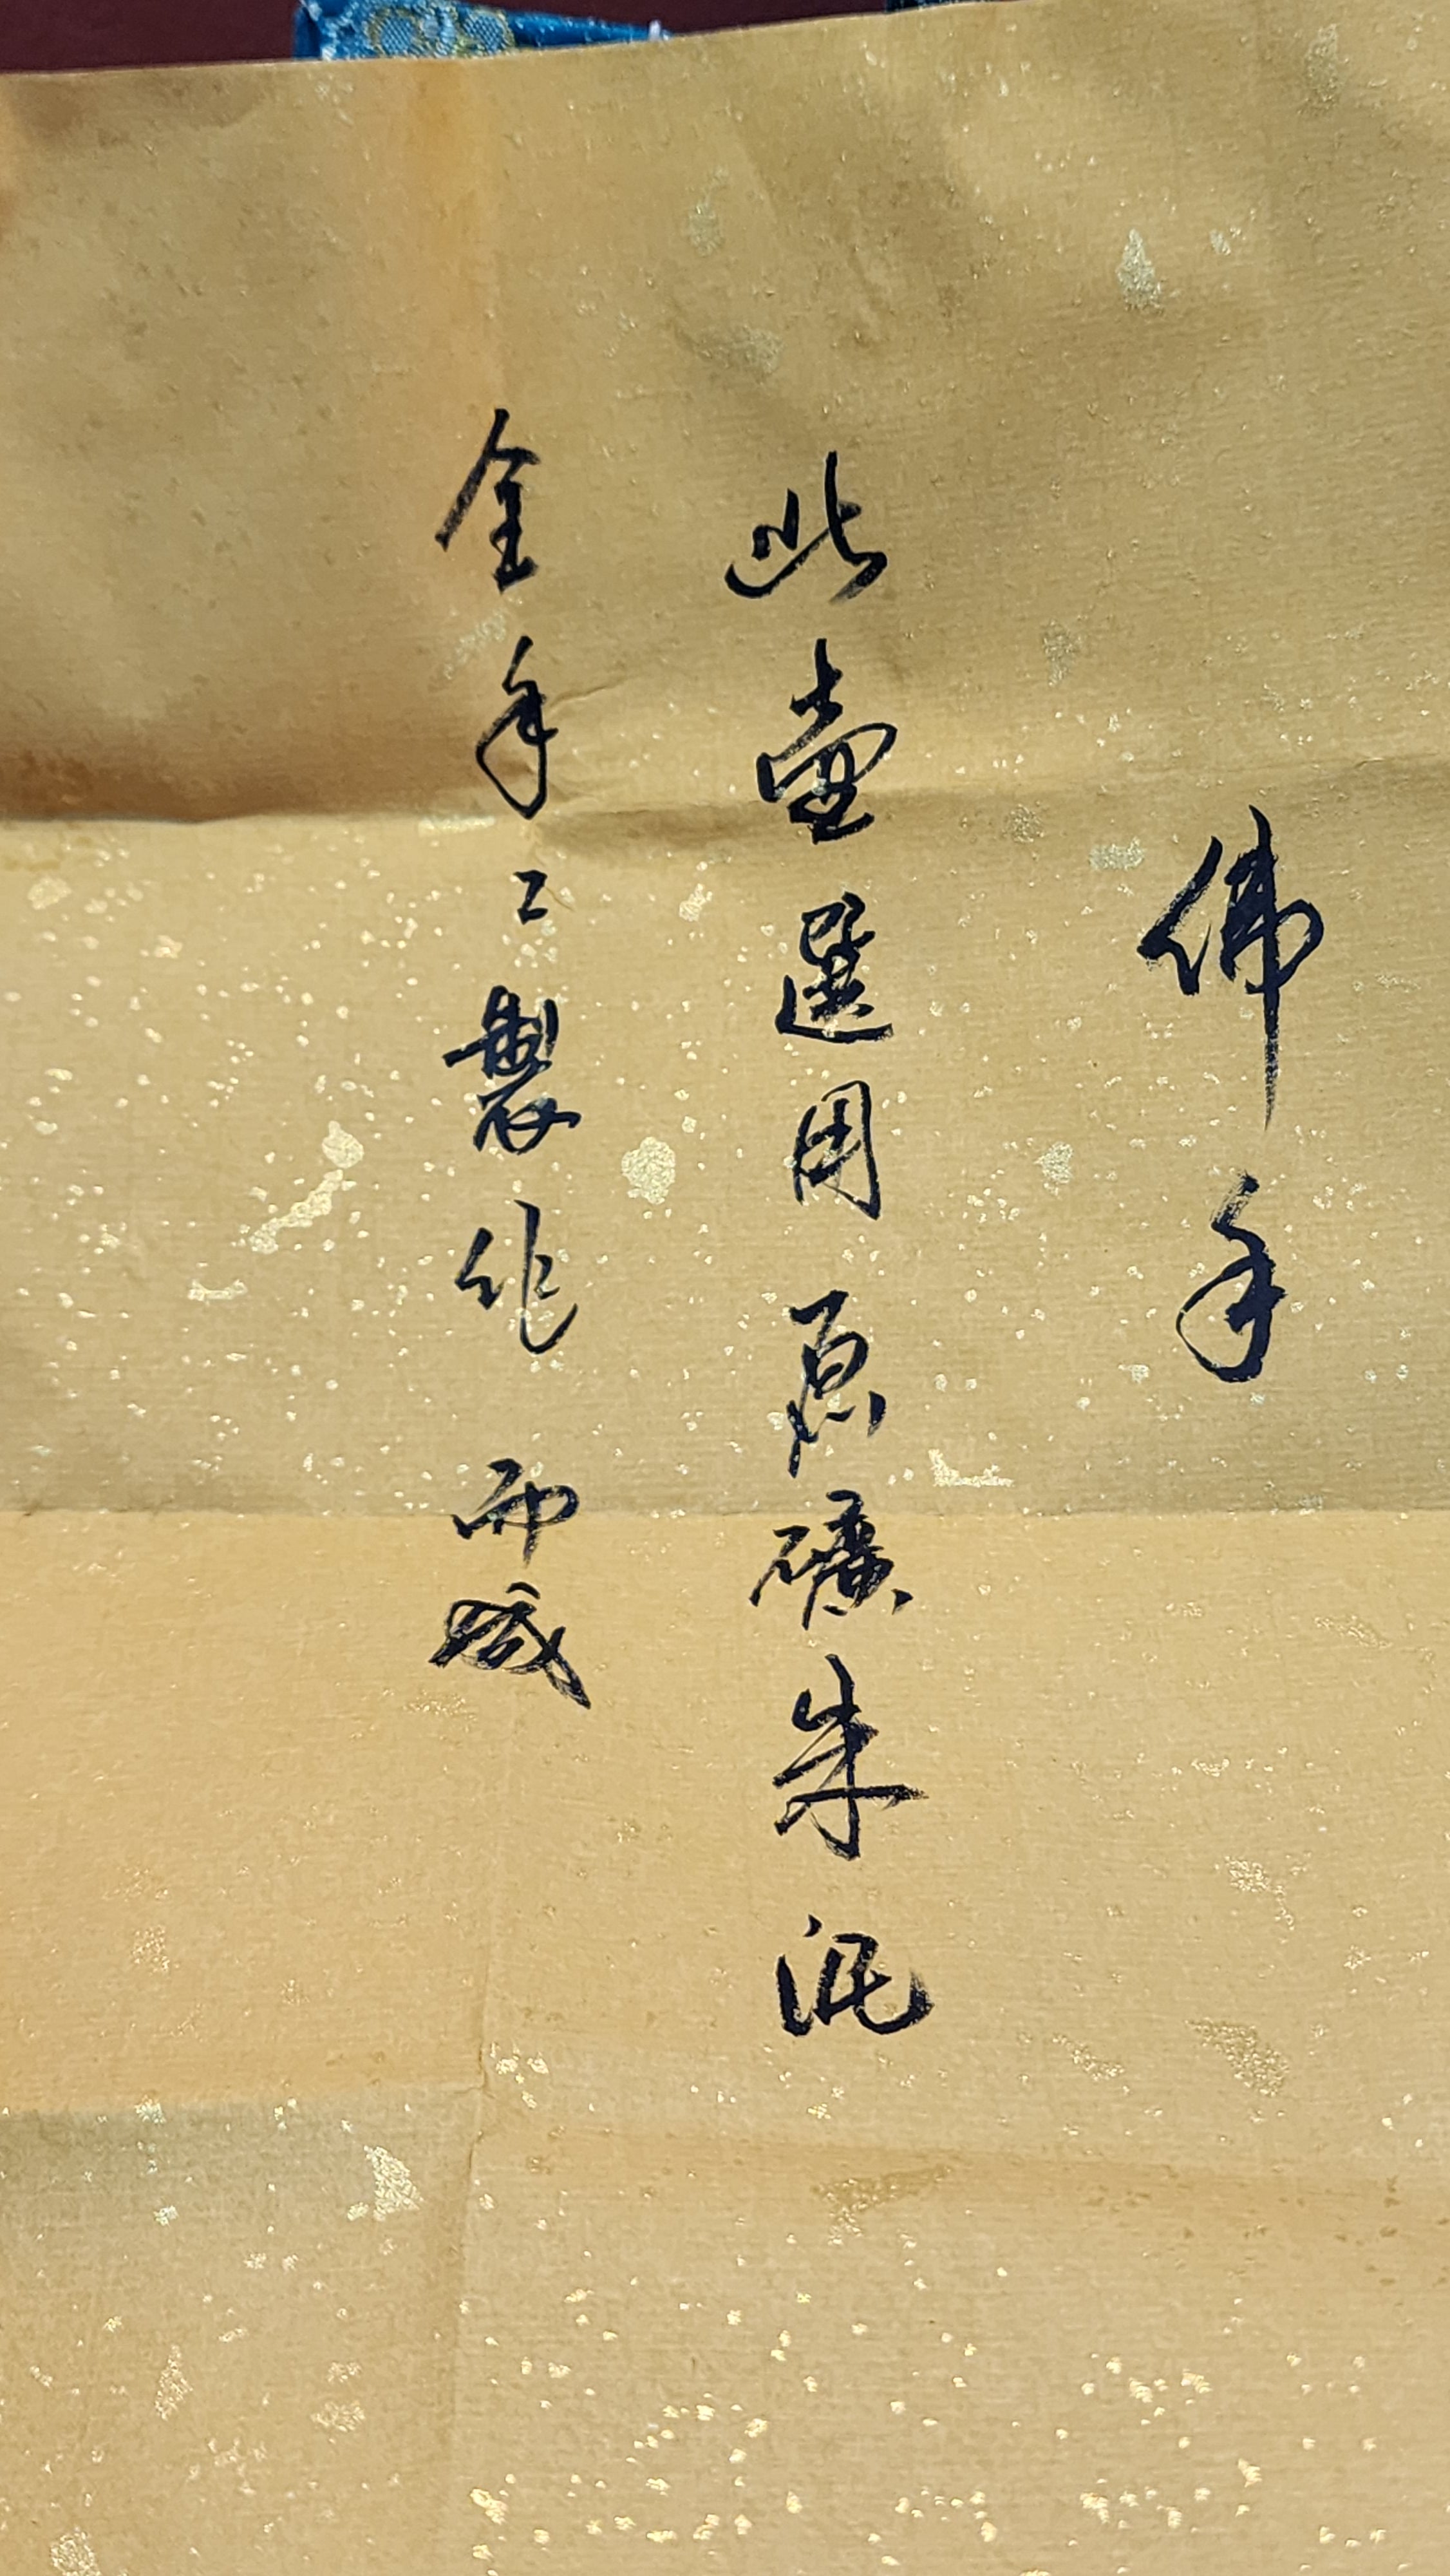 佛手
此壶選用原礦朱泥
全手工製作而成